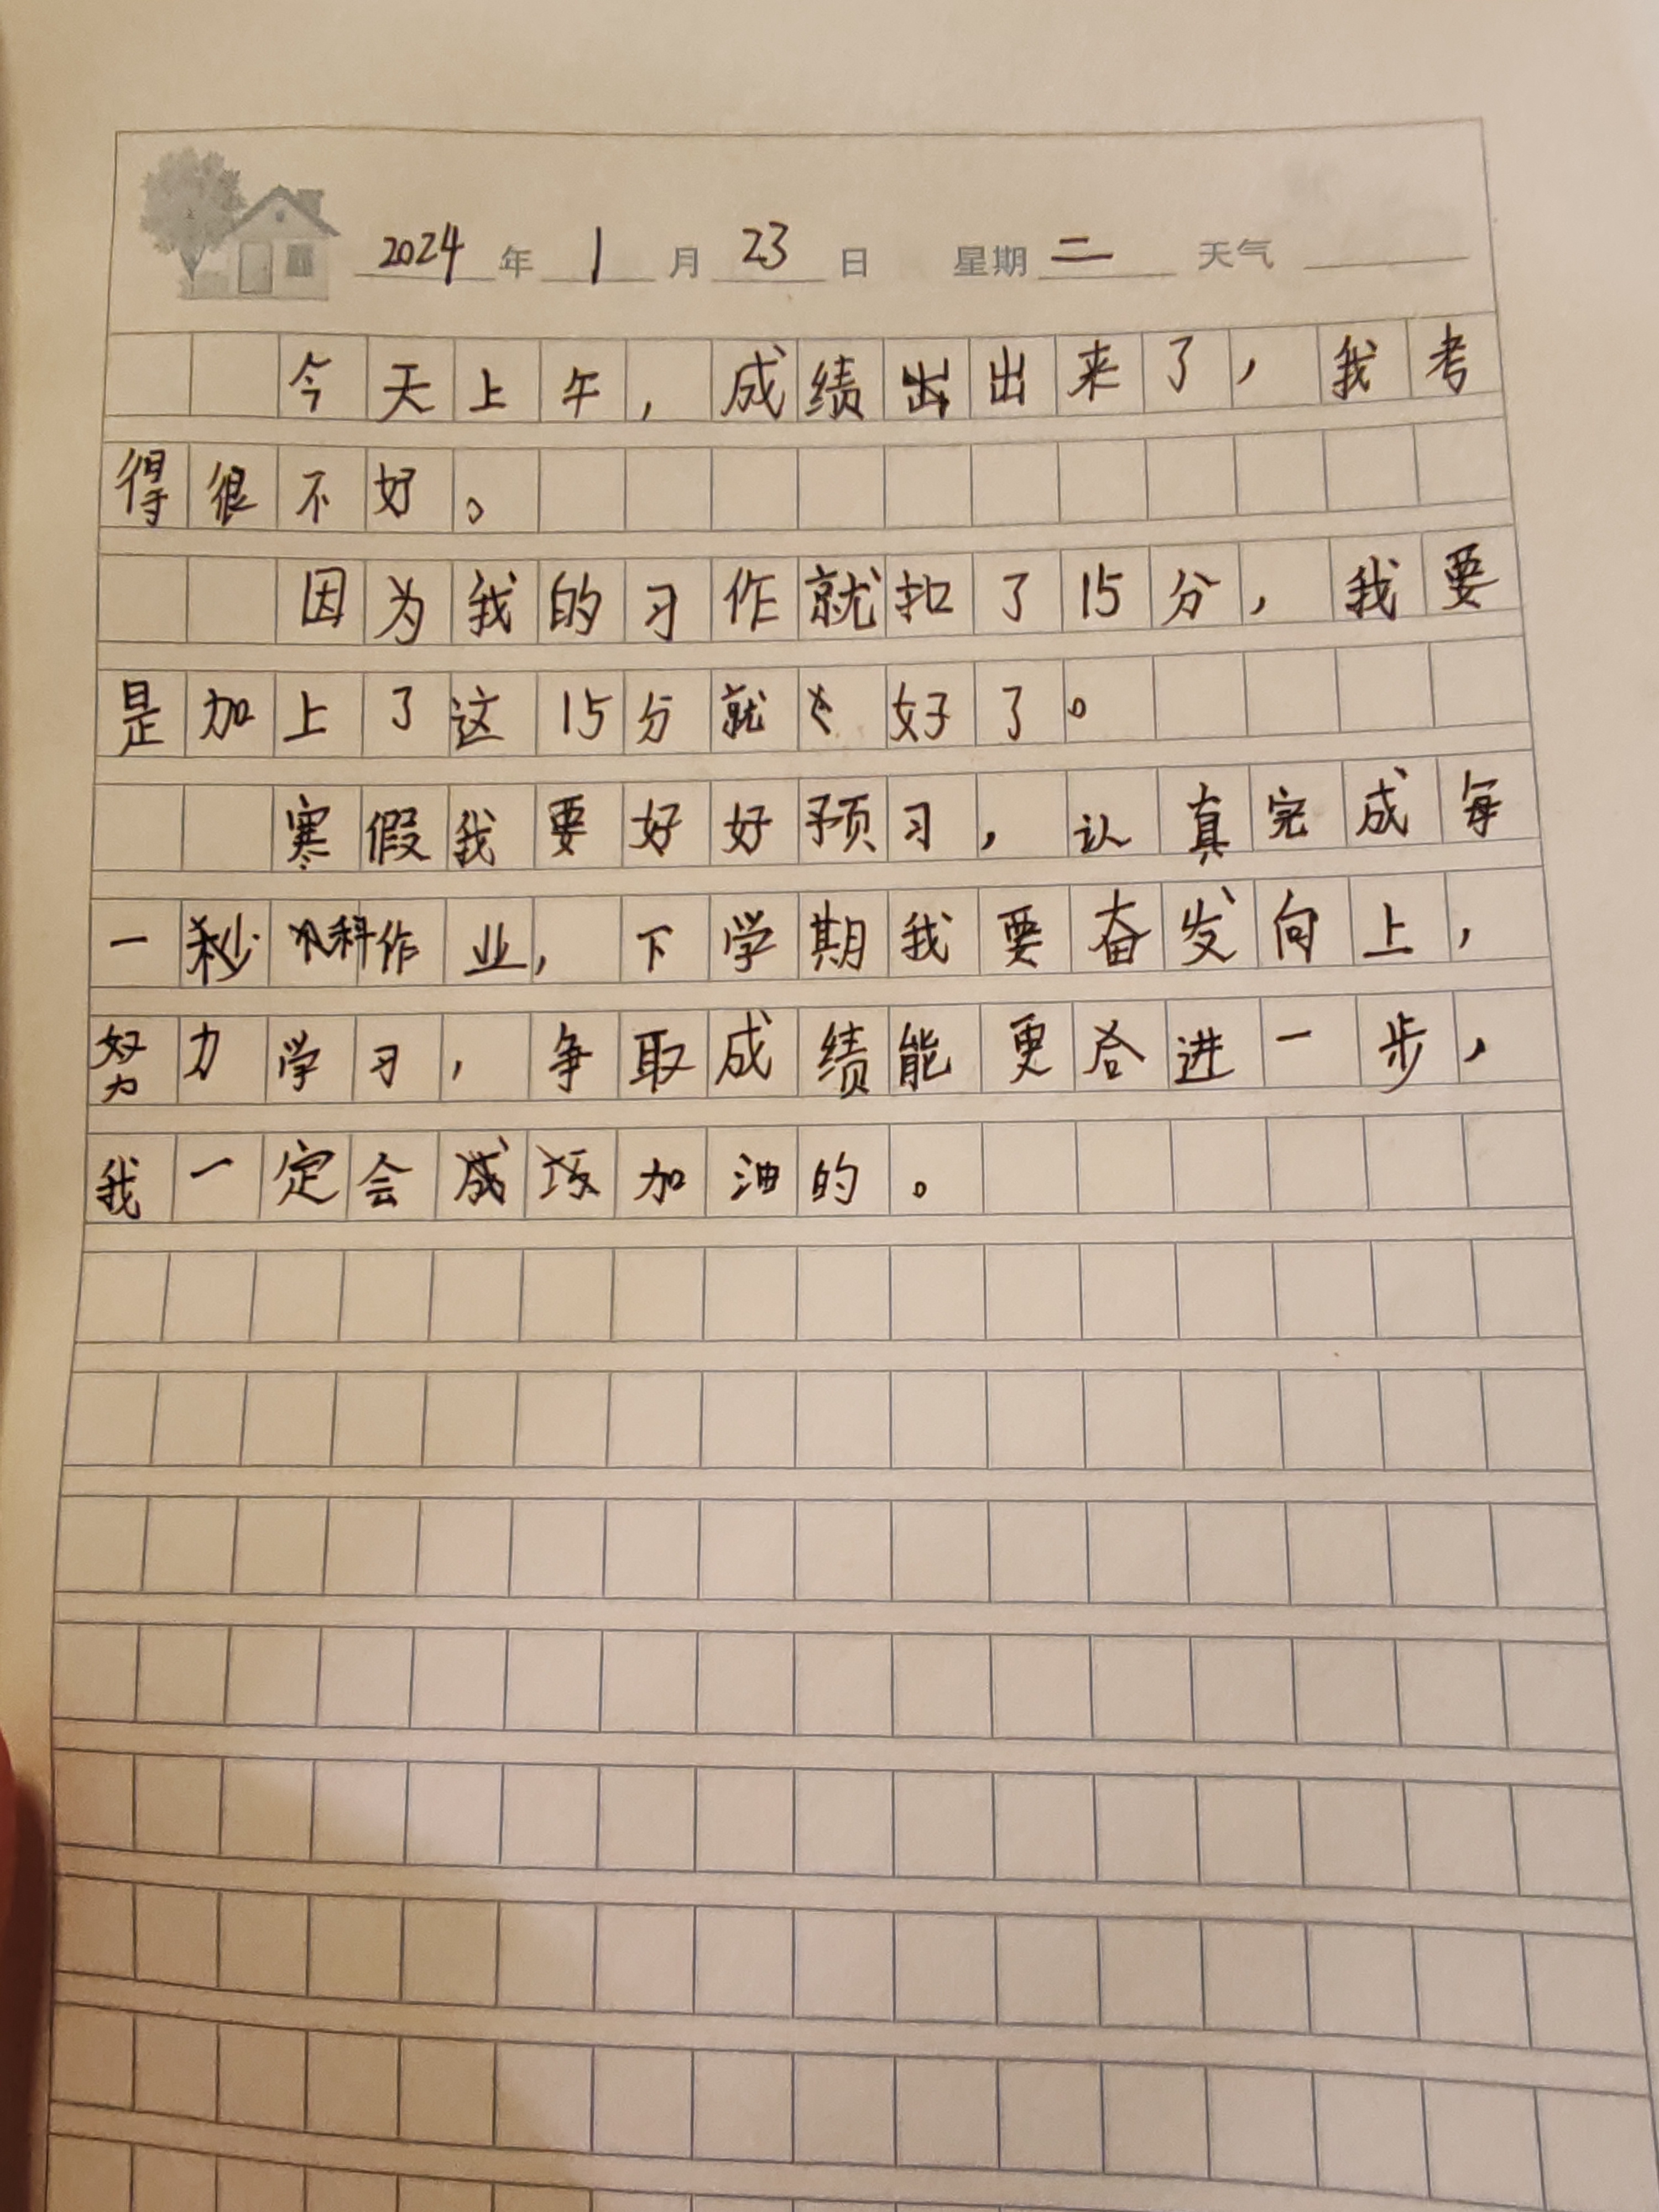 2024 年 1 月 23 日 星期 二 天气
今天上午，成绩出来了，我考
得很不好。
因为我的习作就扣了15分，我要
是加上了这15分就好了。
寒假我要好好预习，认真完成每
一科作业，下学期我要奋发向上，
努力学习，争取成绩能更进一步，
我一定会加油的。